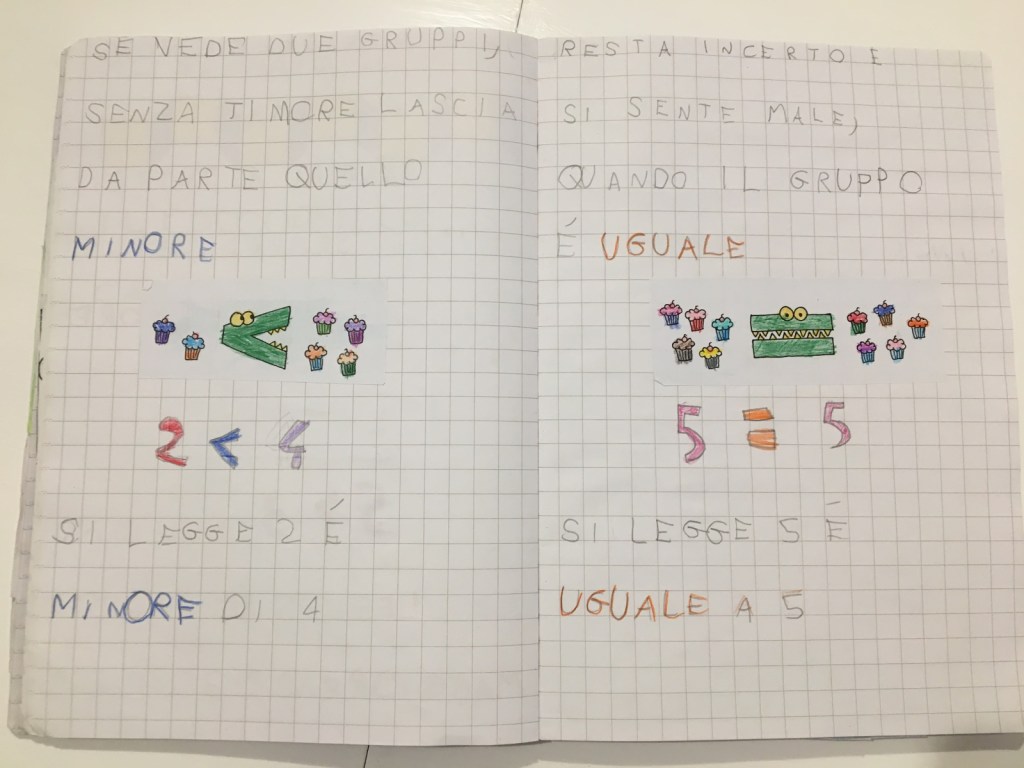 SE VEDE DUE GRUPPI,
SENZA TIMORE LASCIA
DA PARTE QUELLO
MINORE
2 < 4
SI LEGGE 2 É
MINORE DI 4
RESTA INCERTO E
SI SENTE MALE,
QUANDO IL GRUPPO
É UGUALE
5 = 5
SI LEGGE 5 É
UGUALE A 5